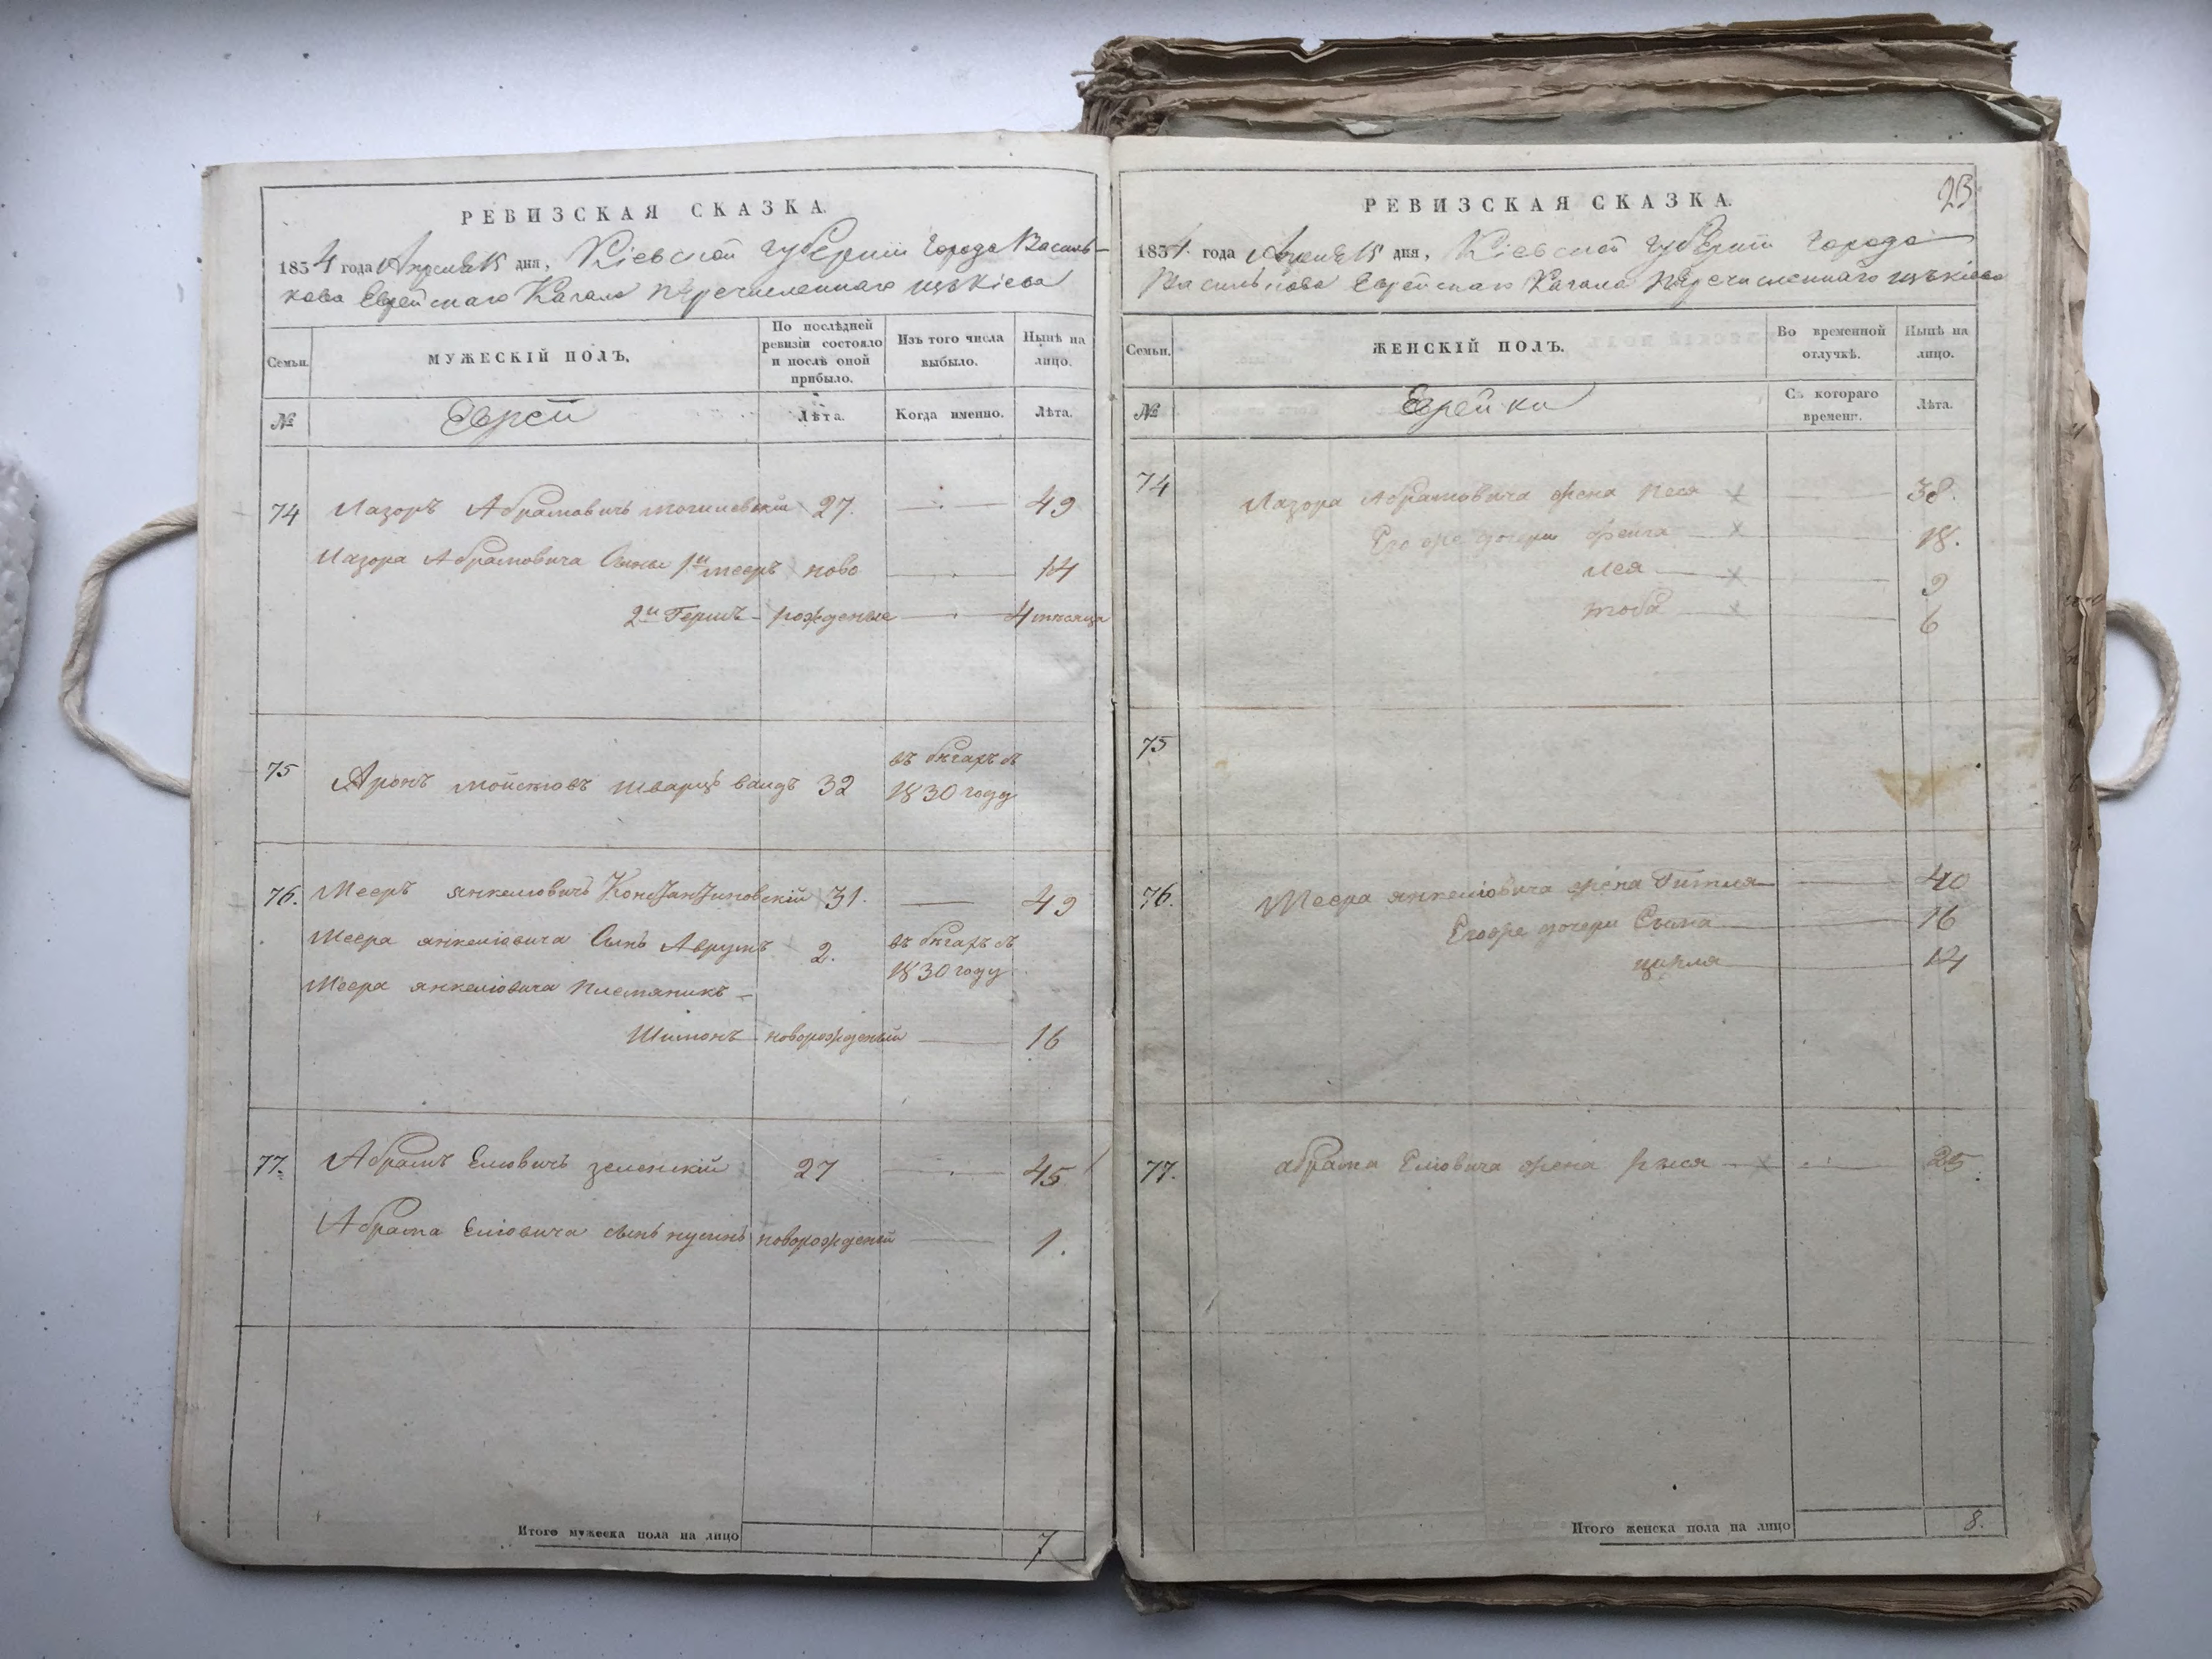 РЕВИЗСКАЯ СКАЗКА.
1834 года Апреля 15 дня, Кіевской губерніи города Василь-
кова Еврейскаго Кагала перечисленнаго изъ Кіева
Семьи.
МУЖЕСКІЙ ПОЛЪ.
По послѣдней ревизіи состояло и послѣ оной прибыло.
Изъ того числа выбыло.
Нынѣ на лицо.
№
Евреи
Лѣта.
Когда именно.
Лѣта.
74 Лазоръ Абрамовичъ Могилевскій 27. — 49
Лазора Абрамовича сыны 1й Мееръ ново — 14
2й Гершъ – рожденые — 4 месяца
75 Аронъ Мойсіовъ Шварцъвалдъ 32 въ бѣгахъ съ 1830 году
76. Мееръ Янкеліовичъ Константиновскій 31. — 49
Меера Янкеліовича сынъ Аврумъ 2. въ бѣгахъ съ 1830 году
Меера Янкеліовича племяникъ –
Шимонъ – новорожденый — 16
77. Абрамъ Еліовичъ Зеленскій 27 — 45
Абрама Еліовича сынъ Нусинъ новорожденый — 1.
Итого мужеска пола на лицо 7
23
РЕВИЗСКАЯ СКАЗКА.
1834 года Апреля 15 дня, Кіевской губерніи города
Василькова Еврейскаго Кагала перечисленнаго изъ Кіева
Семьи.
ЖЕНСКІЙ ПОЛЪ.
Во временной отлучкѣ.
Нынѣ на лицо.
№
Еврейки
Съ котораго времени.
Лѣта.
74 Лазора Абрамовича жена Песя × — 38.
Его же дочери Фейга — × — 18.
Лея — × — 9
Тоба — × — 6
75
76. Меера Янкеліовича жена Гитля — 40
Его же дочери Сима — 16
Цирля — 14
77. Абрама Еліовича жена — × — 25.
Итого женска пола на лицо 8.